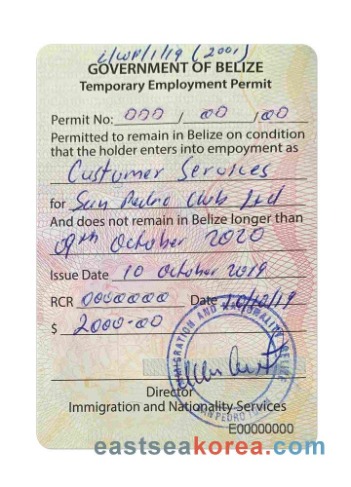 L/WP/1/19 (2001)
GOVERNMENT OF BELIZE
Temporary Employment Permit
Permit No: 000 / 00 / 00
Permitted to remain in Belize on condition
that the holder enters into empoyment as
Customer Services
for San Pedro Club Ltd
And does not remain in Belize longer than
09th October 2020
Issue Date 10 October 2019
RCR 0000000 Date 10/10/19
$ 2000-00
IMMIGRATION AND NATIONALITY BELIZE
SAN PEDRO
Director
Immigration and Nationality Services
E00000000
eastseakorea.com